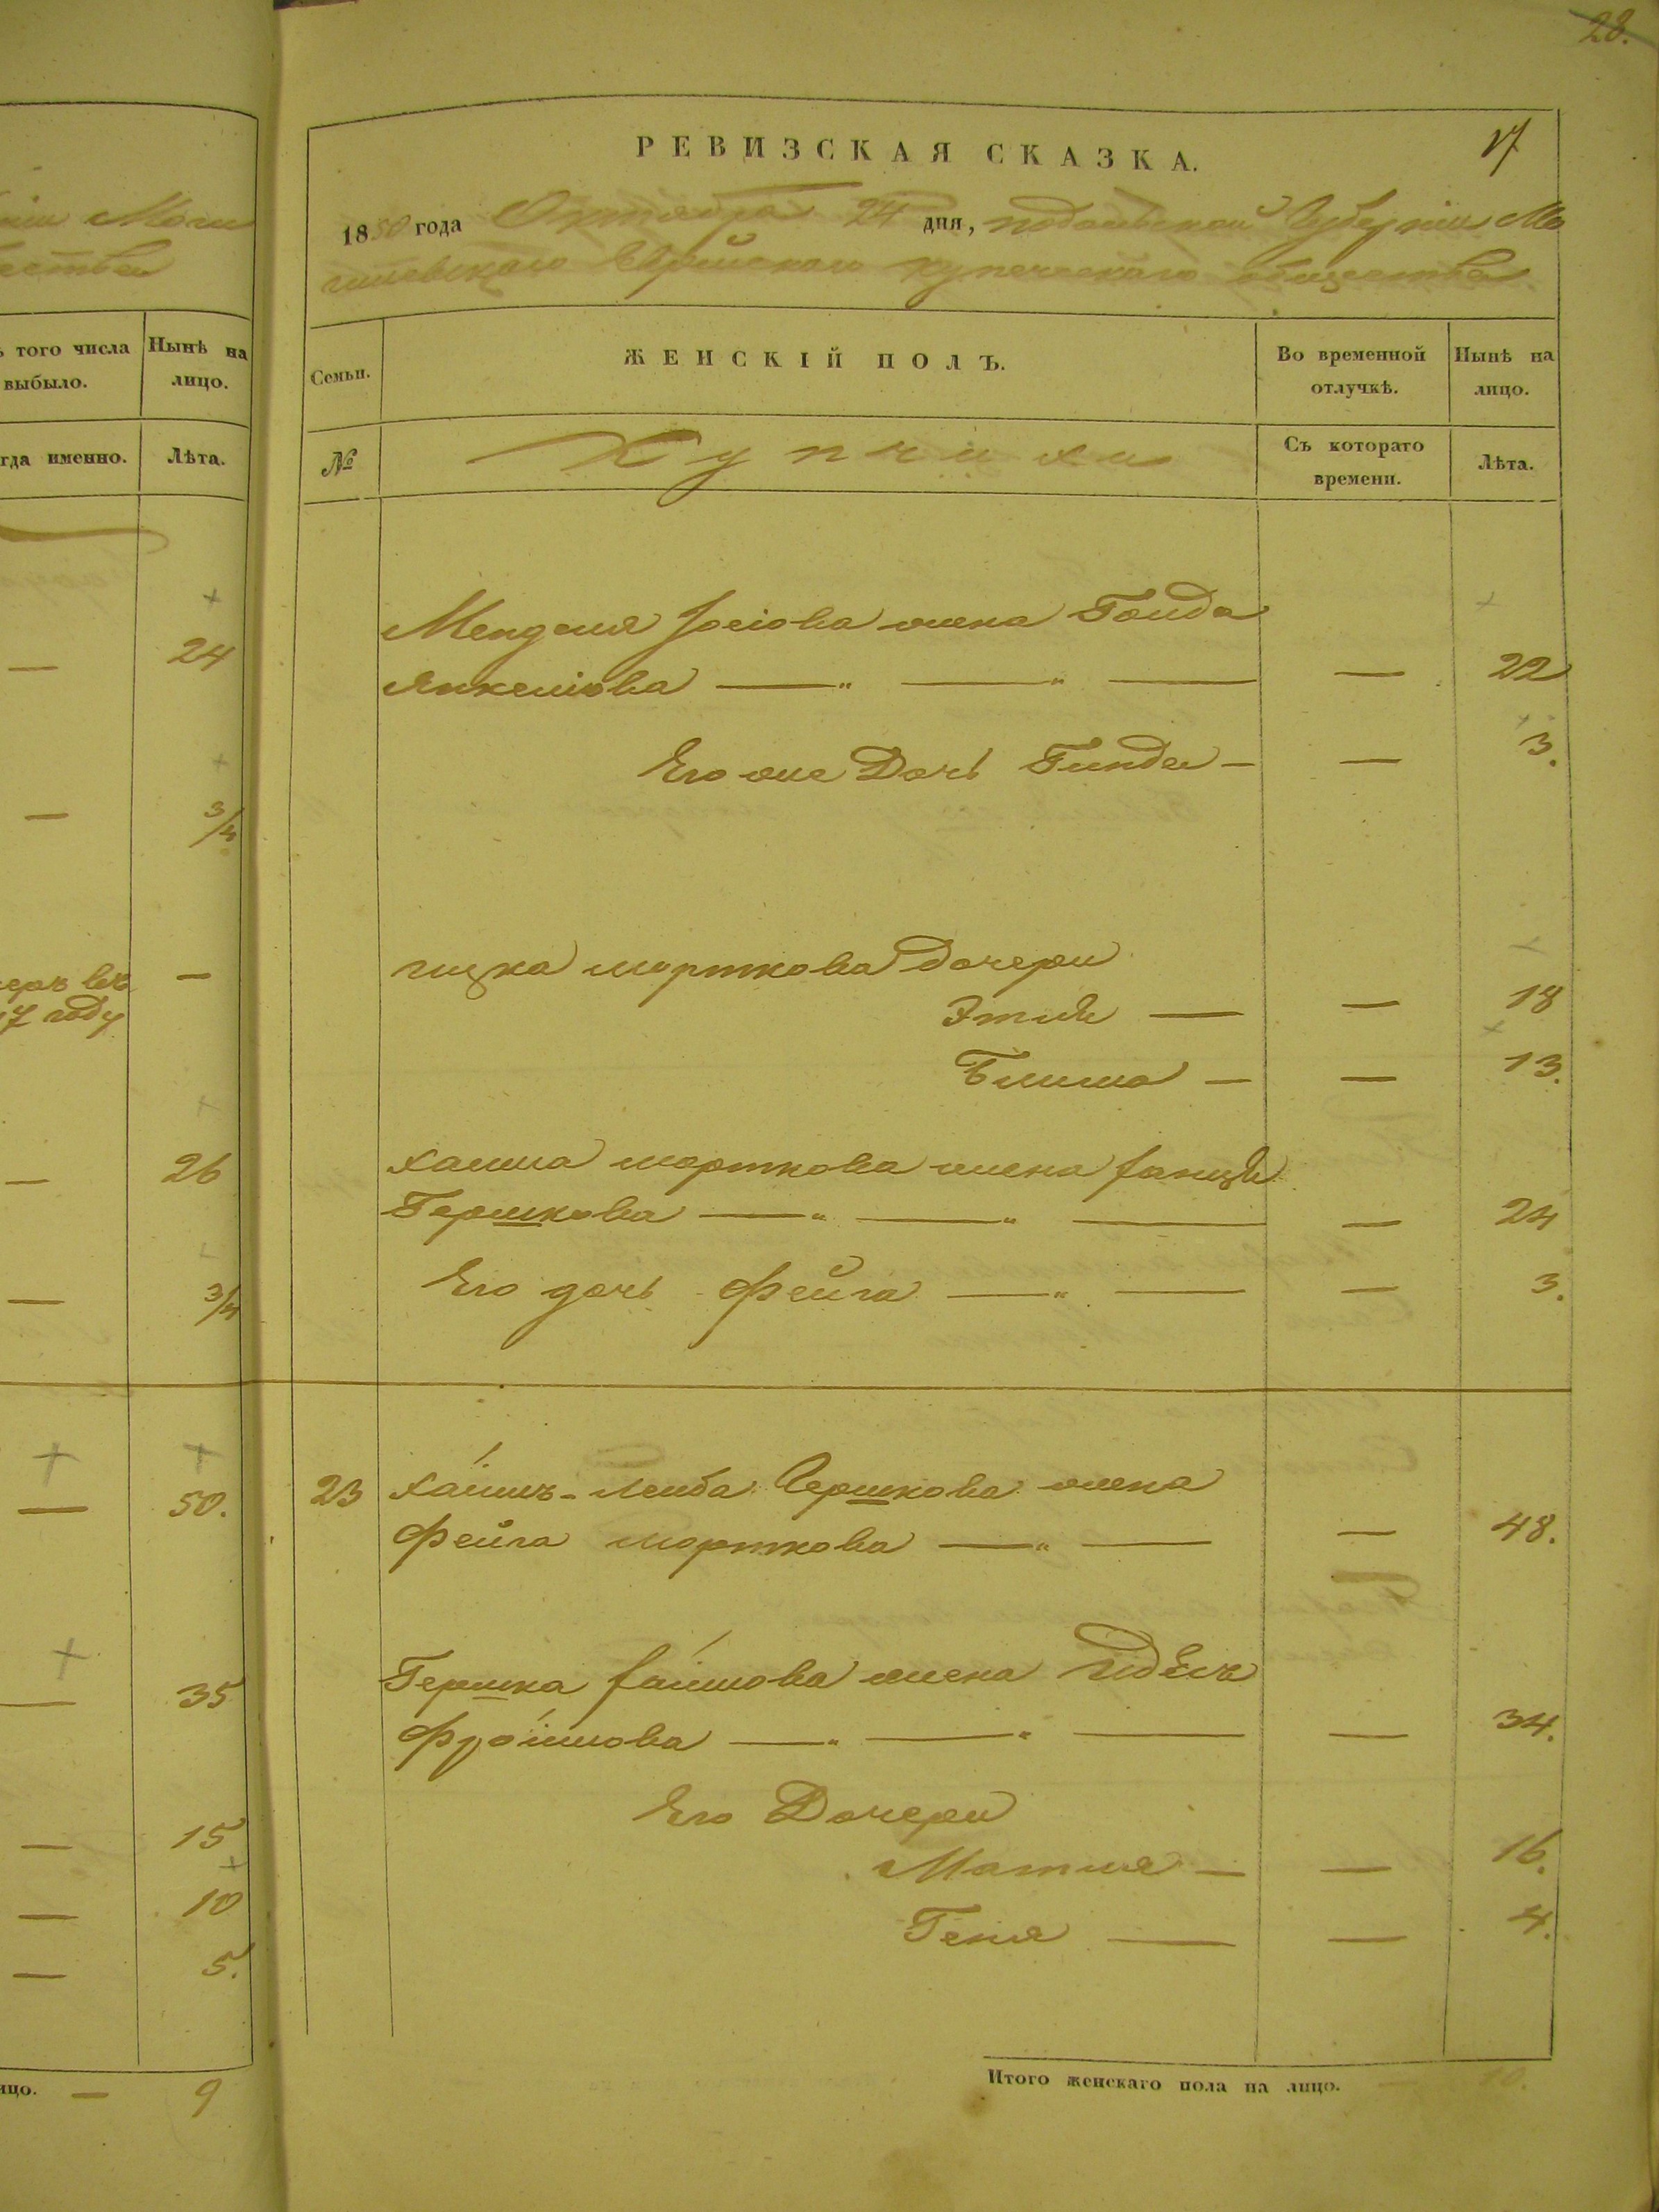 28.
РЕВИЗСКАЯ СКАЗКА.
17
1850 года Октября 24 дня, подольской Губерніи Мо
гилевского Еврейского купеческого общества
того числа
выбыло.
Нынѣ на
лицо.
Семьи.
ЖЕНСКІЙ ПОЛЪ.
Во временной
отлучкѣ.
Нынѣ на
лицо.
гда именно.
Лѣта.
№
Купчихи
Съ котораго
времени.
Лѣта.
Менделя Іосіова жена Голда
Янкеліова — 22
24
Его же Дочь Гинда — — 3.
3/4
ицка морткова дочери
7 году
Этля — — 18
Блима — — 13.
26
хаима морткова жена ханця
Гершкова — 24
Его дочь Фейга — 3.
3/4
23 хаимъ-лейба Гершкова жена
50.
Фейга морткова — 48.
Гершка хаимова жена Идесъ
35
Фроимова — 34.
Его Дочери
15
Матля — — 16.
10
Геня — — 4.
5.
ицо. — 9
Итого женскаго пола на лицо. — 10.